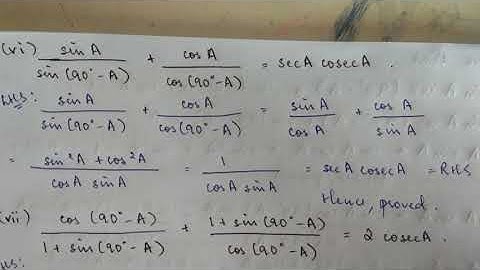 (vi) sin A / sin (90° - A) + cos A / cos (90° - A) = sec A cosec A .
LHS: sin A / sin (90° - A) + cos A / cos (90° - A) = sin A / cos A + cos A / sin A
= sin²A + cos²A / cos A sin A = 1 / cos A sin A = sec A cosec A = RHS
Hence, proved.
(vii) cos (90° - A) / 1 + sin (90° - A) + 1 + sin (90° - A) / cos (90° - A) = 2 cosec A .
LHS: